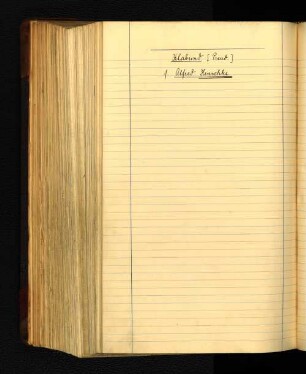 Klabund [Pseud]
1 Alfred Henschke